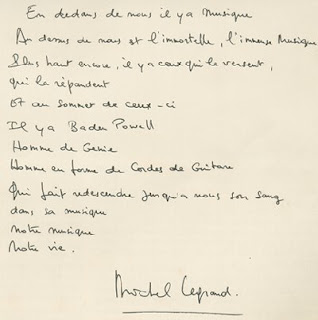 En dedans de nous il y a Musique
Au dessus de nous est l'immortelle, l'immense Musique
Plus haut encore, il y a ceux qui la versent,
qui la répandent
Et au sommet de ceux-ci
Il y a Baden Powell
Homme de Génie
Homme en forme de Cordes de Guitare
Qui fait redescendre jusqu'à nous son sang
dans sa musique
Notre musique
Notre vie.
Michel Legrand.